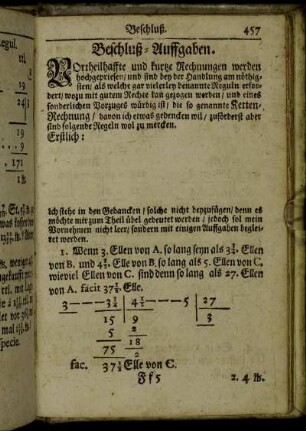 Beschluß. 457
Beschluß-Auffgaben.
Vortheilhaffte und kurtze Rechnungen werden
hochgepriesen / und sind bey der Handlung am nöthig-
sten / als welche gar vielerley benannte Reguln erfor-
dert / wozu mit gutem Rechte kan gezogen werden / und eines
sonderlichen Vorzuges würdig ist / die so genannte Ketten-
Rechnung / davon ich etwas gedencken wil / zuförderst aber
sind folgende Regeln wol zu mercken.
Erstlich:
Ich stehe in den Gedancken / solche nicht beyzufügen / denn es
möchte mir zum Theil übel gedeutet werden / jedoch sol mein
Vornehmen nicht leer / sondern mit einigen Auffgaben beglei-
tet werden.
1. Wenn 3. Ellen von A. so lang seyn als 3¾. Ellen
von B. und 4½. Elle von B. so lang als 5. Ellen von C,
wieviel Ellen von C. sind denn so lang als 27. Ellen
von A. facit 37½. Elle.
3 — 3¾ | 4½ — 5 | 27
15 9 3
5 2
75 18
2
fac. 37½ Elle von C.
Ff5 2. 4 lb.